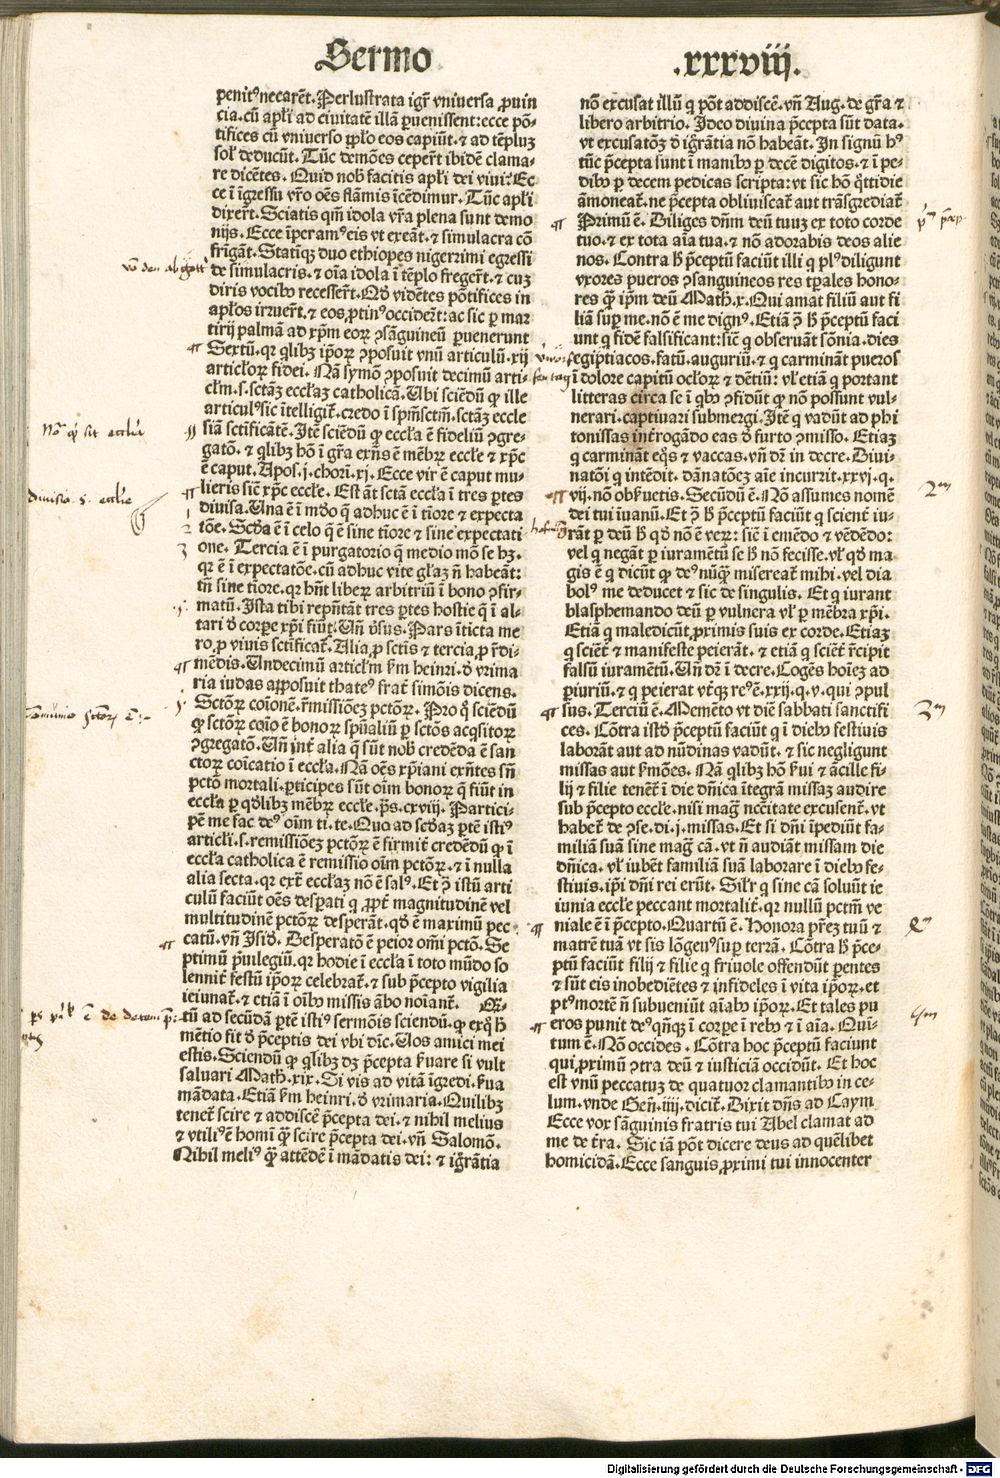 Sermo
.xxxviij.
penitꝰ necarēt. Perlustrata igr̄ vniuersa ꝓuin
cia. cū apl̄i ad ciuitatē illā ꝑuenissent: ecce pō-
tifices cū vniuerso ꝓplo eos capiūt. ⁊ ad tēpluꝫ
sol̄ deducūt. Tūc demōes ceper̄t ibidē clama-
re dicētes. Quid nob̄ facitis apl̄i dei viui? Ec
ce ī īgressu vr̄o oēs flāmis īcēdimur. Tūc apl̄i
dixer̄t. Sciatis qm̄ idola vr̄a plena sunt demo
nijs. Ecce īperamꝰ eis vt exeāt. ⁊ simulacra cō
frīgāt. Statīqꝫ duo ethiopes nigerrimi egressi
de simulacris. ⁊ oīa idola ī tēplo freger̄t. ⁊ cuꝫ
diris vocibꝰ recesser̄t. Qd̄ vidētes pōtifices in
apl̄os irruer̄t. ⁊ eos ꝓtinꝰ occider̄t: ac sic ꝑ mar
tirij palmā ad xp̄m eoꝝ ꝯsāguineū ꝑuenerunt
Sextū. qꝛ qlibꝫ ip̄oꝝ ꝯposuit vnū articulū. xij
articl̓oꝝ fidei. Nā symō ꝯposuit decimū arti-
cl̄m. s. sctāꝫ eccl̄aꝫ catholicā. Ubi sciēdū ꝙ ille
articulꝰ sic ītelligit̄. credo ī spm̄sctm̄. sctāꝫ eccle
siā sctificātē. Itē sciēdū ꝙ eccl̄a ē fideliū ꝯgre-
gatō. ⁊ qlibꝫ hō ī gr̄a exn̄s ē mēbꝝ eccle ⁊ xp̄c
ē caput. Apos. j. chori. xj. Ecce vir ē caput mu-
lieris siē xp̄c eccle. Est āt sctā eccl̄a ī tres ꝑtes
diuisa. Una ē ī mūdo q̄ adhuc ē ī tiore ⁊ expecta
tōe. Scd̄a ē ī celo q̄ ē sine tiore ⁊ sine expectati
one. Tercia ē ī purgatorio q̄ medio mō se hꝫ.
qꝛ ē ī expectatōe. cū adhuc vite gl̄aꝫ n̄ habeāt:
tn̄ sine tiore. qꝛ hn̄t liberꝝ arbitriū ī bono ꝯfir-
matū. Ista tibi repn̄tāt tres ꝑtes hostie q̄ ī al-
tari d̓ corꝑe xp̄i fiūt. Un̄ v̓sus. Pars īticta me
ro, ꝓ viuis sctificat̄. Alia, ꝓ sctis ⁊ tercia, ꝓ r̄di-
mēdis. Undecimū articl̄m km̄ heinri. d̓ vrima
ria iudas apposuit thateꝰ frat̄ simōis dicens.
Sctōꝝ coīonē. r̄missiōeꝫ pctōꝝ. Pro q̄ sciēdū
ꝙ sctōꝝ coīo ē bonoꝝ spūaliū ꝑ sctōs acq̄sitoꝝ
ꝯgregatō. Un̄ int̄ alia q̄ sūt nob̄ credēda ē san
ctoꝝ coīcatio ī eccl̄a. Nā oēs xp̄iani exn̄tes sn̄
pctō mortali. ꝑticipes sūt oīm bonoꝝ q̄ fiūt in
eccl̄a ꝑ qd̓libꝫ mēbꝝ eccle. ps̄. cxviij. Partici-
pē me fac deꝰ oīm ti. te. Quo ad scd̄aꝫ ꝑtē istiꝰ
articl̓i. s. remissiōeꝫ pctōꝝ ē firmit̄ credēdū ꝙ ī
eccl̄a catholica ē remissio oīm pctōꝝ. ⁊ ī nulla
alia secta. qꝛ ext̄ eccl̄aꝫ nō ē salꝰ. Et ꝯ̄ istū arti
culū faciūt oēs desꝑati q ꝓpt̄ magnitudinē vel
multitudinē pctōꝝ desperāt. qd̄ ē maximū pec
catū. vn̄ Isid̄. Desperatō ē peior om̄i pctō. Se
ptimū p̄uilegiū. qꝛ hodie ī eccl̄a ī toto mūdo so
lennit̄ festū ip̄oꝝ celebrat̄. ⁊ sub p̄cepto vigilia
ieiunat̄. ⁊ etiā ī oībꝰ missis ābo noīant̄. Qꝛ-
tū ad secūdā ꝑtē istiꝰ sermōis sciendū. ꝙ exqꝛ h̄
mētio fit d̓ p̄ceptis dei vbi dic̄. Uos amici mei
estis. Sciendū ꝙ qlibꝫ dꝫ p̄cepta ẜuare si vult
saluari Math̄. xix. Si vis ad vitā īgredi. ẜua
mādata. Etiā km̄ heinri. d̓ vrimaria. Quilibꝫ
tenet̄ scire ⁊ addiscē p̄cepta dei. ⁊ nihil melius
⁊ vtiliꝰ ē homī q̄ꝫ scire p̄cepta dei. vn̄ Salomō.
Nihil meliꝰ q̄ꝫ attēdē ī mādatis dei: ⁊ iḡrātia
nō excusat illū q pōt addiscē. vn̄ Aug. de gr̄a ⁊
libero arbitrio. Ideo diuina p̄cepta sūt data.
vt excusatōꝫ d̓ iḡrātia nō habeāt. In signū hꝰ
tūc p̄cepta sunt ī manibꝰ ꝑ decē digitos. ⁊ ī pe-
dibꝰ ꝑ decem pedicas scripta: vt sic hō q̄ttidie
āmoneat̄. ne p̄cepta obliuiscat̄ aut trāsgrediat̄
Primū ē. Diliges dn̄m deū tuuꝫ ex toto corde
tuo. ⁊ ex tota aīa tua. ⁊ nō adorabis deos alie
nos. Contra h̄ p̄ceptū faciūt illi q plꝰ diligunt
vxores pueros ꝯsanguineos res tꝑales hono-
res q̄ꝫ ip̄m deū Math̄. x. Qui amat filiū aut fi
liā suꝑ me. nō ē me dignꝰ. Etiā ꝯ̄ h̄ p̄ceptū faci
unt q fidē falsificant: siē q obseruāt sōnia. dies
egiptiacos. fatū. auguriū. ⁊ q carmināt pueros
ī dolore capitū ocl̓oꝝ ⁊ dētiū: vl̄ etiā q portant
litteras circa se ī qbꝰ ꝯfidūt ꝙ nō possunt vul-
nerari. captiuari submergi. Itē q vadūt ad phi
tonissas int̄rogādo eas d̓ furto ꝯmisso. Etiaꝫ
q carmināt eq̄s ⁊ vaccas. vn̄ dr̄ in decre. Diui-
natōi q intēdit. dānatōeꝫ aīe incurrit. xxvj. q.
vij. nō obẜuetis. Secūdū ē. Nō assumes nomē
dei tui īuanū. Et ꝯ̄ h̄ p̄ceptū faciūt q scient̄ iu-
rāt ꝑ deū h̄ qd̄ nō ē veꝝ: siē ī emēdo ⁊ vēdēdo:
vel q negāt ꝑ iuramētū se h̄ nō fecisse. vl̄ qd̄ ma
gis ē q dicūt ꝙ deꝰ nūq̄ꝫ misereat̄ mihi. vel dia
bolꝰ me deducet ⁊ sic de singulis. Et q iurant
blasphemando deū ꝑ vulnera vl̄ ꝑ mēbra xp̄i.
Etiā q maledicūt, ꝓximis suis ex corde. Etiaꝫ
q sciēt̄ ⁊ manifeste peierāt. ⁊ etiā q sciēt̄ r̄cipit
falsū iuramētū. Un̄ dr̄ ī decre. Cogēs hoīeꝫ ad
ꝑiuriū. ⁊ q peierat vt̄qꝫ reꝰ ē. xxij. q. v. qui ꝯpul
sus. Terciū ē. Memēto vt diē sabbati sanctifi
ces. Cōtra istd̄ p̄ceptū faciūt q ī diebꝰ festiuis
laborāt aut ad nūdinas vadūt. ⁊ sic negligunt
missas aut ẜmōes. Nā qlibꝫ hō ẜui ⁊ ācille fi-
lij ⁊ filie tenēt̄ ī die dn̄ica ītegrā missaꝫ audire
sub p̄cepto eccle. nisi maḡ nc̄citate excusent̄. vt
habet̄ de ꝯse. di. j. missas. Et si dn̄i īpediūt fa-
miliā suā sine maḡ cā. vt n̄ audiāt missam die
dn̄ica. vl̄ iubēt familiā suā laborare ī diebꝰ fe-
stiuis. ip̄i dn̄i rei erūt. Silr̄ q sine cā soluūt ie
iunia eccle peccant mortalit̄. qꝛ nullū pctm̄ ve
niale ē ī p̄cepto. Quartū ē. Honora pr̄eꝫ tuū ⁊
matrē tuā vt sis lōgeuꝰ suꝑ terrā. Cōtra h̄ p̄ce-
ptū faciūt filij ⁊ filie q friuole offendūt ꝑentes
⁊ sūt eis inobediētes ⁊ infideles ī vita ip̄oꝝ. et
ptꝰ mortē n̄ subueniūt aīabꝰ ip̄oꝝ. Et tales pu
eros punit deꝰ qn̄qꝫ ī corꝑe ī rebꝰ ⁊ ī aīa. Qui-
tum ē. Nō occides. Cōtra hoc p̄ceptū faciunt
qui, ꝓximū ꝯtra deū ⁊ iusticiā occidūt. Et hoc
est vnū peccatuꝫ de quatuor clamantibꝰ in ce-
lum. vnde Gen̄. iiij. dicit̄. Dixit dn̄s ad Caym
Ecce vox sāguinis fratris tui Abel clamat ad
me de t̄ra. Sic iā pōt dicere deus ad quēlibet
homicidā. Ecce sanguis, ꝓximi tui innocenter
Digitalisierung gefördert durch die Deutsche Forschungsgemeinschaft - DFG